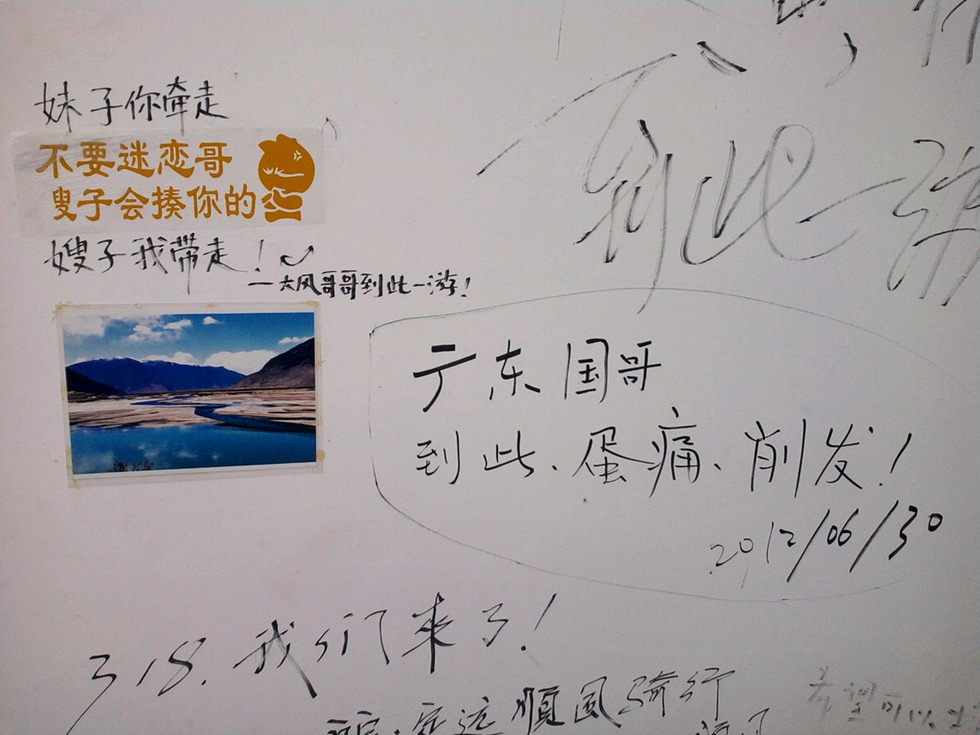 妹子你牵走
不要迷恋哥
嫂子会揍你的
嫂子我带走！
—大风哥哥到此一游！
到此一游
广东国哥
到此、蛋痛、削发！
2012/06/30
318.我们来了！
顺风骑行
希望可以